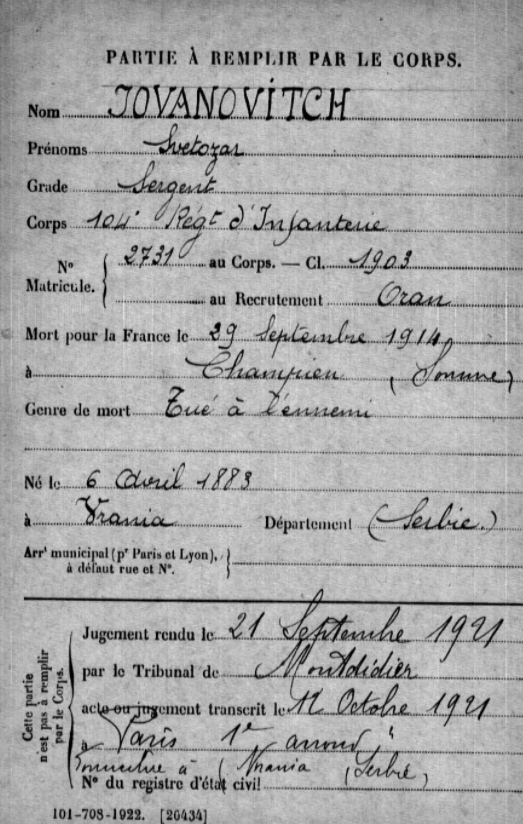 PARTIE À REMPLIR PAR LE CORPS.
Nom JOVANOVITCH
Prénoms Svetozar
Grade Sergent
Corps 104e Régt d'Infanterie
No Matricule. 2731 au Corps. — Cl. 1903
au Recrutement Oran
Mort pour la France le 29 Septembre 1914
à Champien (Somme)
Genre de mort Tué à l'ennemi
Né le 6 Avril 1883
à Vrania Département (Serbie.)
Arrt municipal (pr Paris et Lyon), à défaut rue et No.
Cette partie n'est pas à remplir par le Corps.
Jugement rendu le 21 Septembre 1921
par le Tribunal de Montdidier
acte ou jugement transcrit le 12 Octobre 1921
à Paris 1er arrond.
à Vrania (Serbie)
No du registre d'état civil
101-708-1922. [26434]